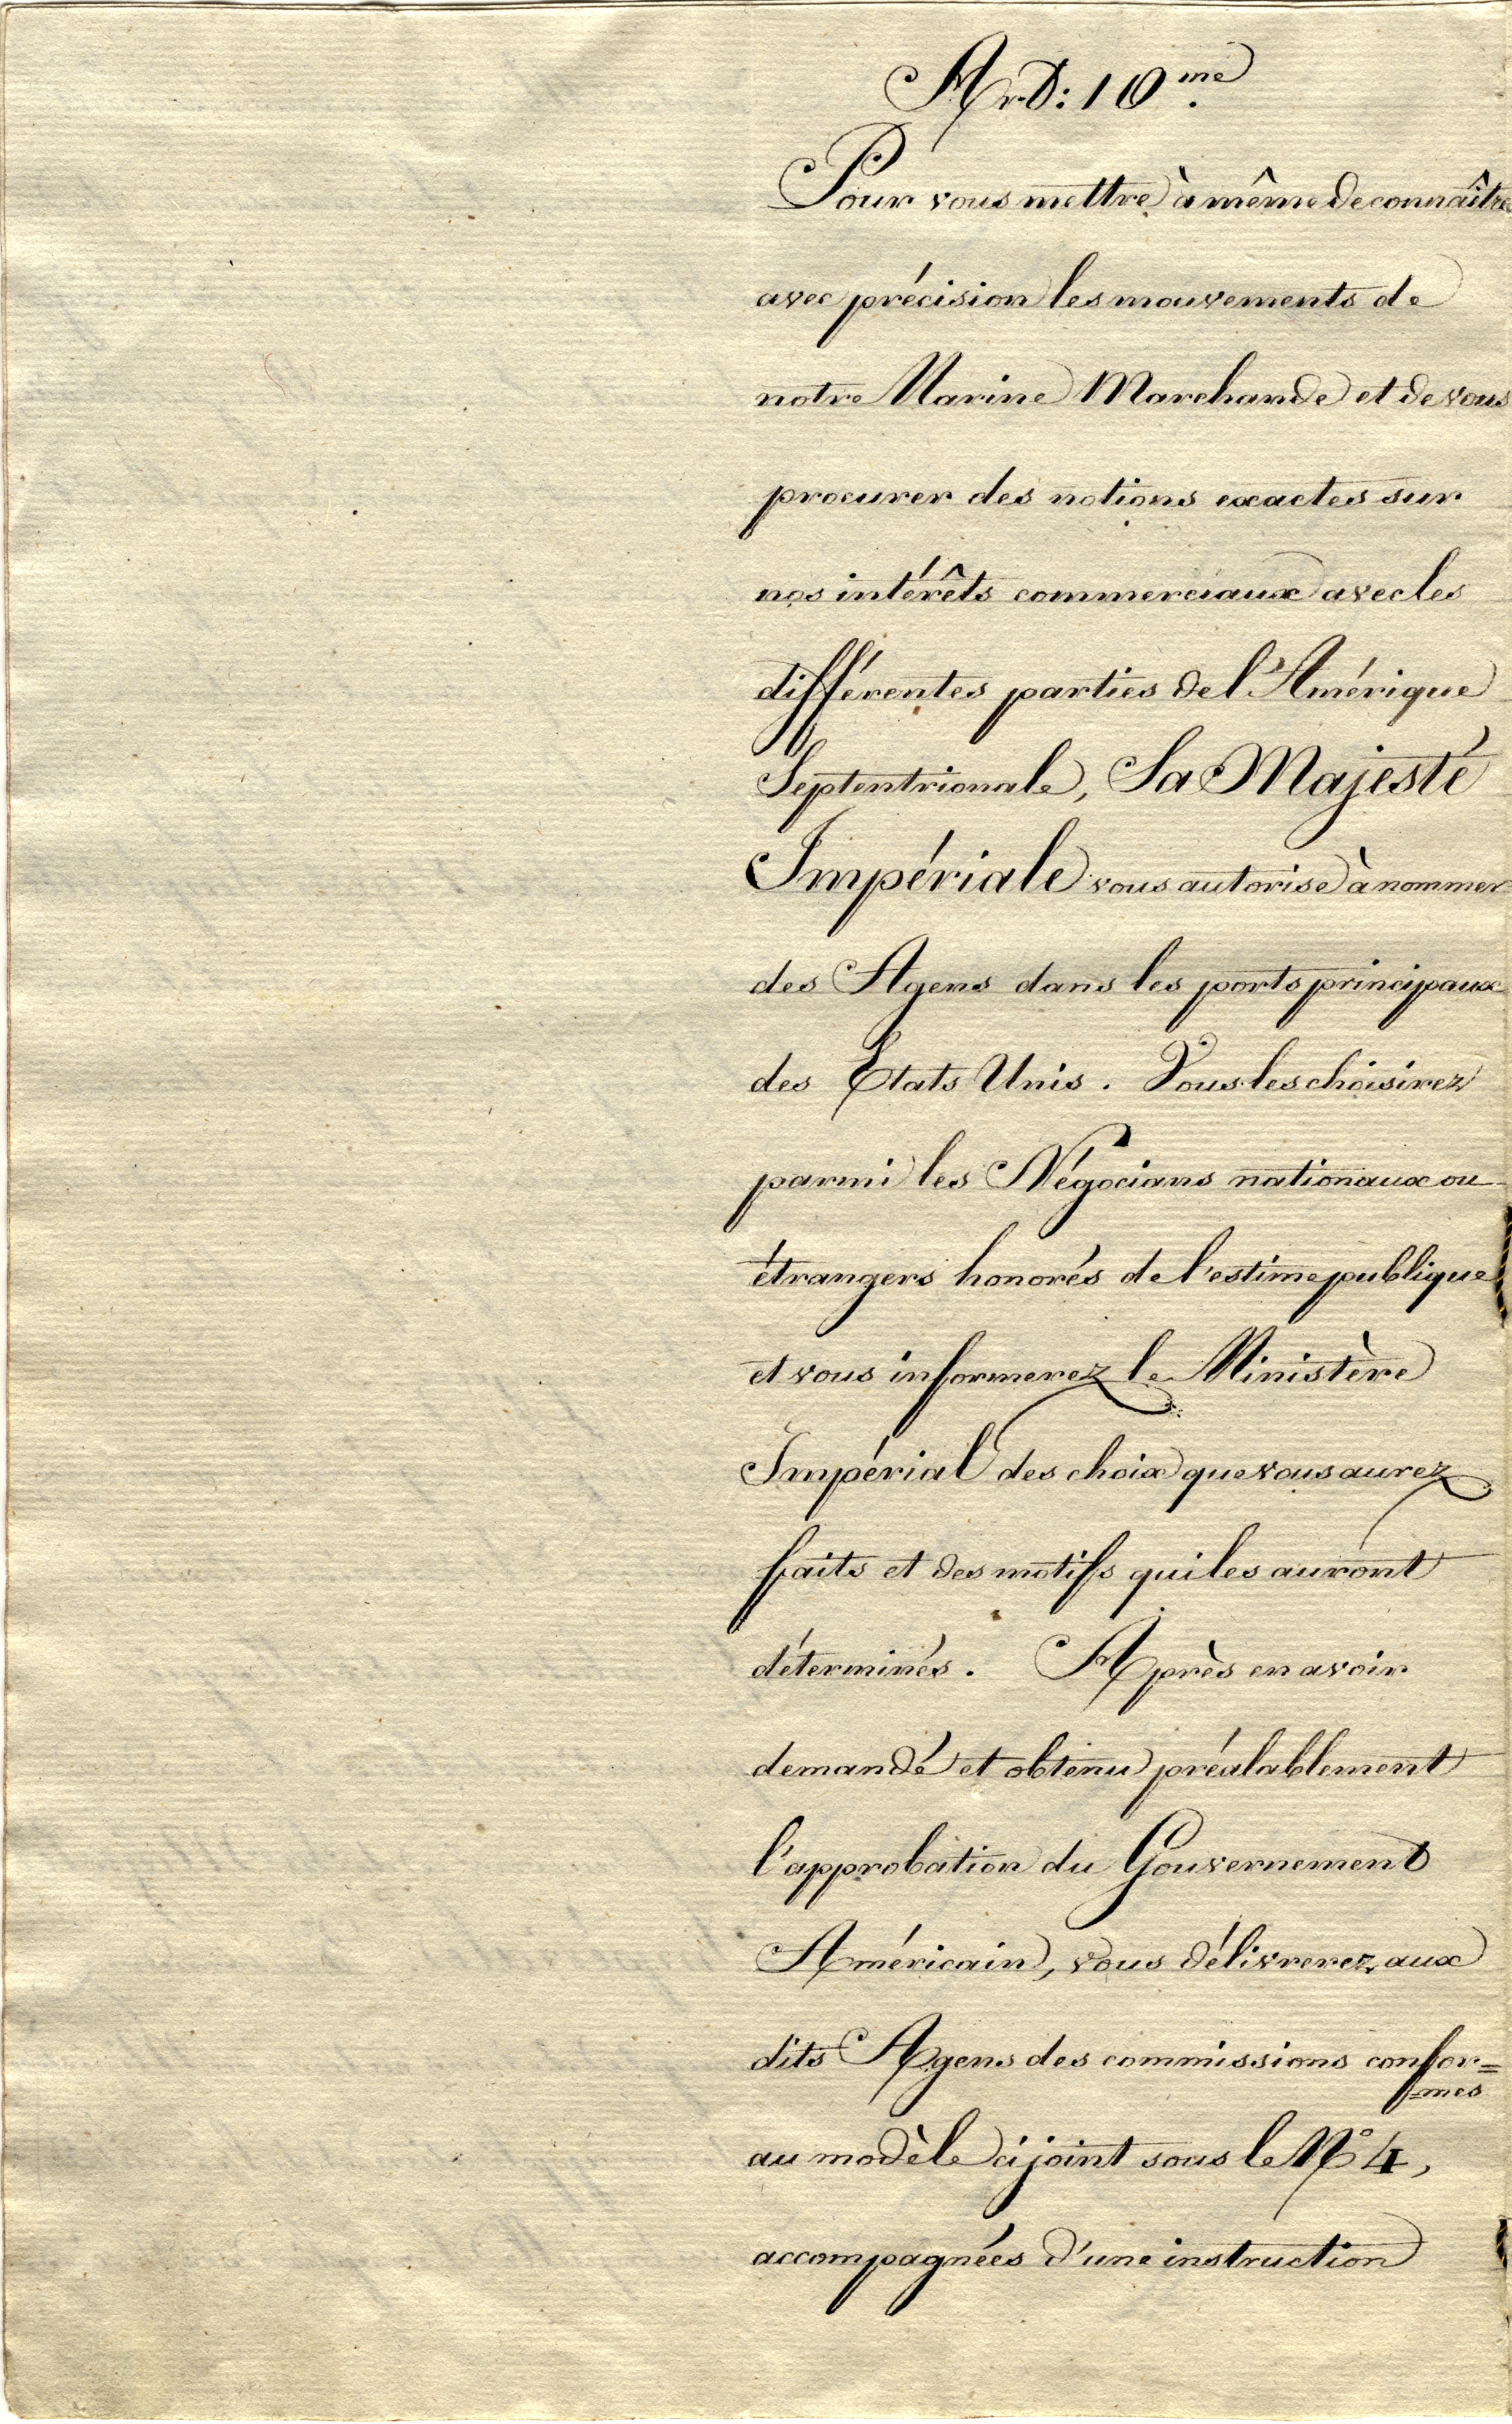 Art: 10.me
Pour vous mettre à même de connaître
avec précision les mouvements de
notre Marine Marchande et de vous
procurer des notions exactes sur
nos intérêts commerciaux avec les
différentes parties de l'Amérique
Septentrionale, Sa Majesté
Impériale vous autorise à nommer
des Agens dans les ports principaux
des Etats Unis. Vous les choisirez
parmi les Négocians nationaux ou
étrangers honorés de l'estime publique
et vous informerez le Ministère
Impérial des choix que vous aurez
faits et des motifs qui les auront
déterminés. Après en avoir
demandé et obtenu préalablement
l'approbation du Gouvernement
Américain, vous délivrerez aux
dits Agens des commissions confor=
=mes
au modèle ci joint sous le No 4,
accompagnées d'une instruction